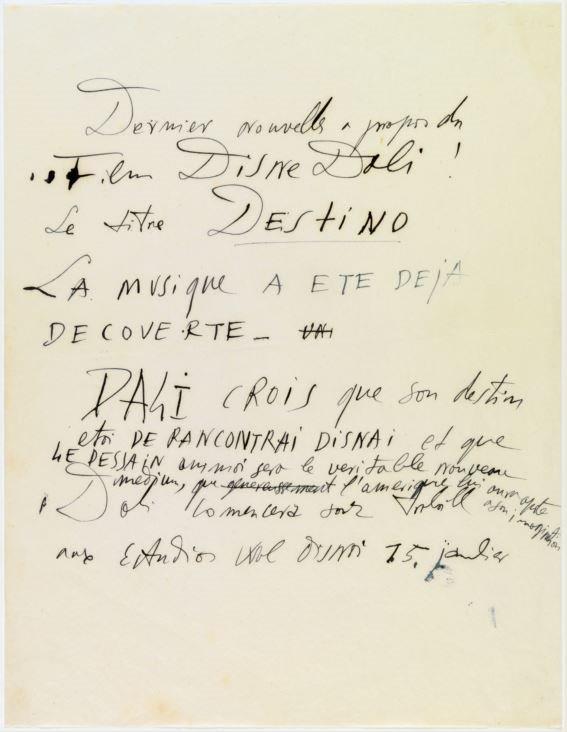 Dernier nouvells a propos du
Film Disne Dali !
Le titre DESTINO
LA MUSIQUE A ETE DEJA
DECOVERTE_
DALI CROIS que son destin
etoi DE RANCONTRAI DISNAI et que
LE DESSAIN animoi sera le veritable nouveau
medium, que l'amerique lui aura apte
a son imagination
Dali Comencera son
aux Estudios Wol DISNAI 15. janvier